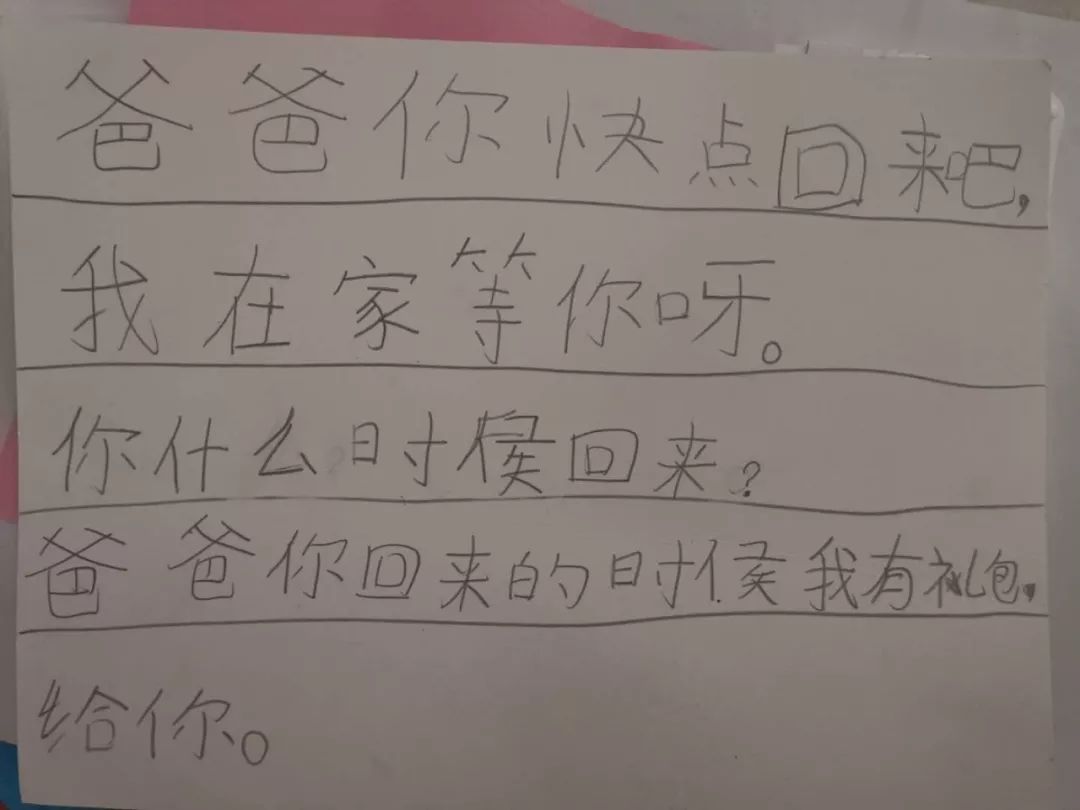 爸爸你快点回来吧,
我在家等你呀。
你什么时候回来?
爸爸你回来的时候我有礼包,
给你。